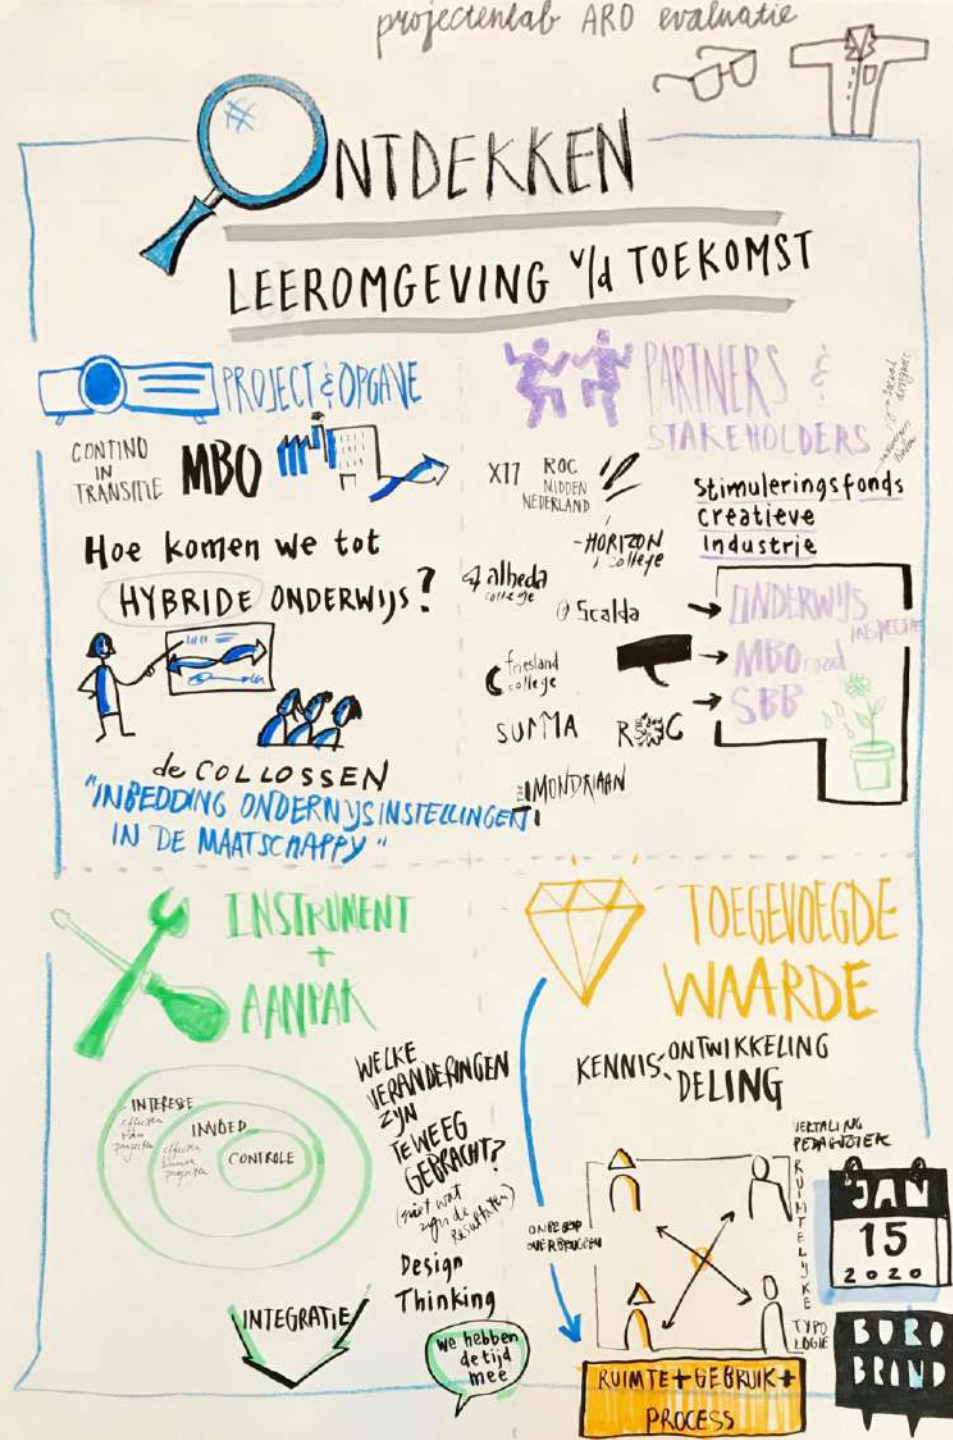 projectenlab ARO evaluatie
ONTDEKKEN
LEEROMGEVING v/d TOEKOMST
PROJECT & OPGAVE
CONTINO
IN
TRANSITIE
MBO
Hoe komen we tot
HYBRIDE ONDERWIJS?
de COLLOSSEN
"INBEDDING ONDERWIJSINSTELLINGEN
IN DE MAATSCHAPPY"
PARTNERS &
STAKEHOLDERS
social
designer
X11
ROC
MIDDEN
NEDERLAND
-HORIZON
college
albeda
college
Scalda
friesland
college
SUMMA
ROC
MONDRIAAN
Stimuleringsfonds
creatieve
Industrie
ONDERWIJS
INSPECTIE
MBO raad
SBB
INSTRUMENT
+
AANPAK
INTERESSE
effecten
van
projecten
INVLOED
effecten
binnen
projecten
CONTROLE
WELKE
VERANDERINGEN
ZYN
TEWEEG
GEBRACHT?
(niet wat
zijn de
resultaten)
Design
Thinking
INTEGRATIE
we hebben
de tijd
mee
TOEGEVOEGDE
WAARDE
KENNIS ONTWIKKELING
DELING
VERTALING
PEDAGOGIEK
RUIMTELIJKE
TYPO
LOGIE
OVERBRUGGEN
RUIMTE + GEBRUIK +
PROCESS
JAN
15
2020
BORO
BRAND